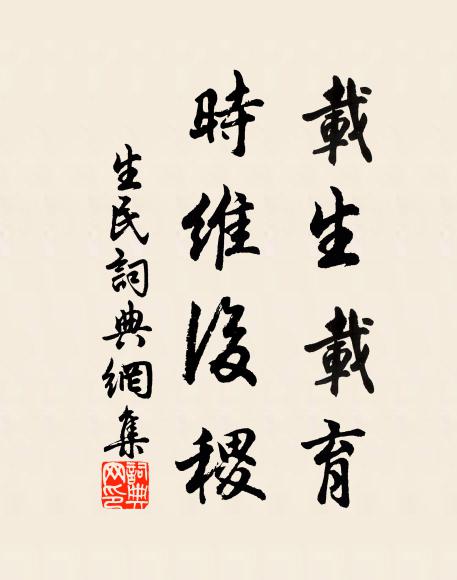 載生載育
時維後稷
生民詞典網集
詞典网印